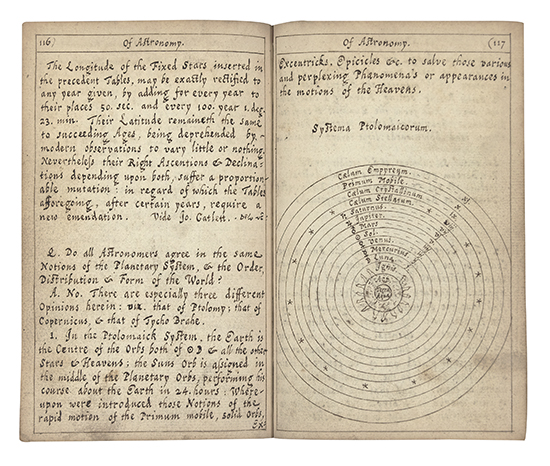 116) Of Astronomy.
The Longitude of the Fixed Stars inserted in
the precedent Tables, may be exactly rectified to
any year given, by adding for every year to
their places 50. sec. and every 100. year 1. deg.
23. min. Their Latitude remaineth the same
to succeeding Ages, being deprehended by
modern observations to vary little or nothing.
Nevertheless their Right Ascentions & Declina-
tions depending upon both, suffer a proportion-
able mutation: in regard of which the Tables
afforegoing, after certain years, require a
new emendation. Vide Jo. Catlett.
Q. Do all Astronomers agree in the same
Notions of the Planetary System, & the Order,
Distribution & Form of the World?
A. No. There are especially three different
Opinions herein: viz. that of Ptolomy; that of
Copernicus, & that of Tycho Brahe.
1. In the Ptolomaick System, the Earth is
the Centre of the Orbs both of ☉☽ & all the other
Stars & Heavens: the Suns Orb is assigned in
the middle of the Planetary Orbs, performing his
course about the Earth in 24. hours: Where-
upon were introduced those Notions of the
rapid motion of the Primum mobile, solid Orbs,
Ex-
Of Astronomy. (117
Excentricks, Epicicles &c. to salve those various
and perplexing Phænomena's or appearances in
the motions of the Heavens.
Systema Ptolomaicorum.
Cælum Empyreum.
Primum Mobile.
Cælum Crystallinum
Cælum Stellarum.
Saturnus.
Jupiter.
Mars
Sol.
Venus.
Mercurius
Luna
Ignis